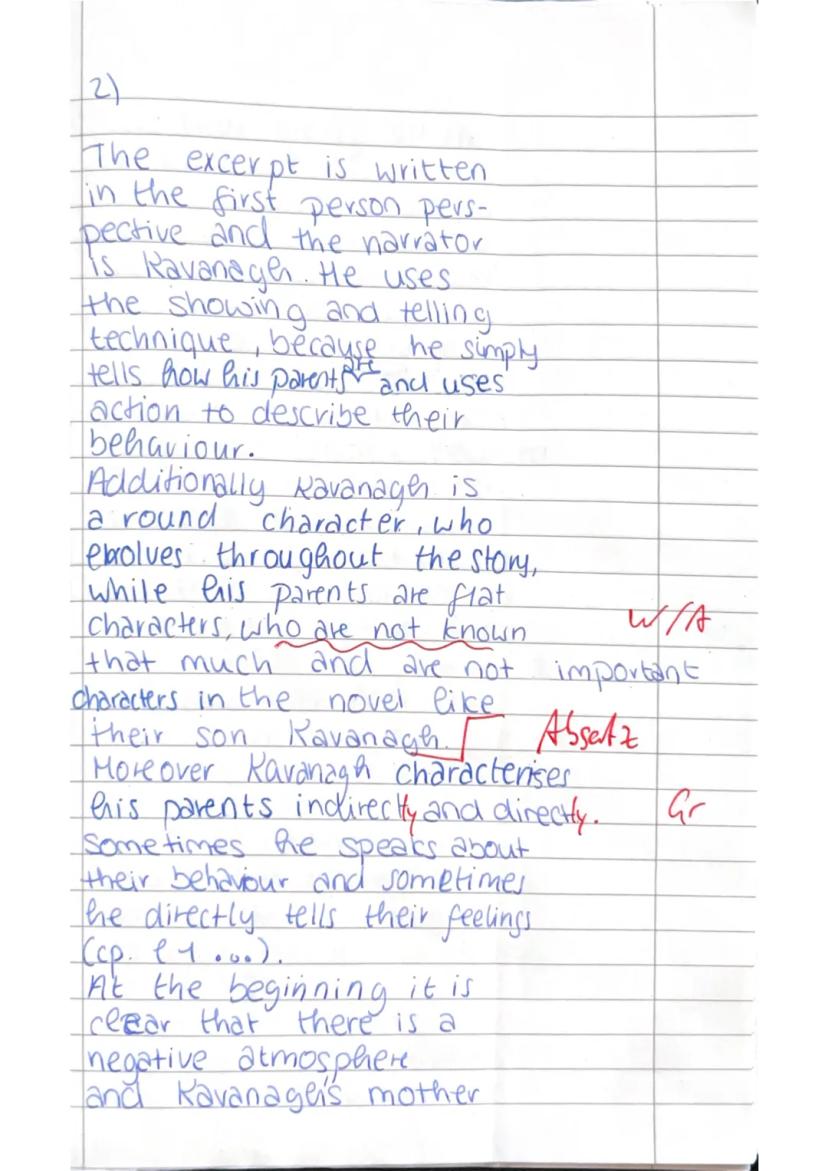 2)
The excerpt is written
in the first person pers-
pective and the narrator
is Kavanagh. He uses
the showing and telling
technique, because he simply
tells how his parents are and uses
action to describe their
behaviour.
Additionally Kavanagh is
a round character, who
evolves throughout the story,
while his parents are flat
characters, who are not known W/A
that much and are not important
characters in the novel like
their son Kavanagh. Absatz
Moreover Kavanagh characterises
his parents indirectly and directly. Gr
Sometimes he speaks about
their behaviour and sometimes
he directly tells their feelings
(cp. l 1 ...).
At the beginning it is
clear that there is a
negative atmosphere
and Kavanagh's mother